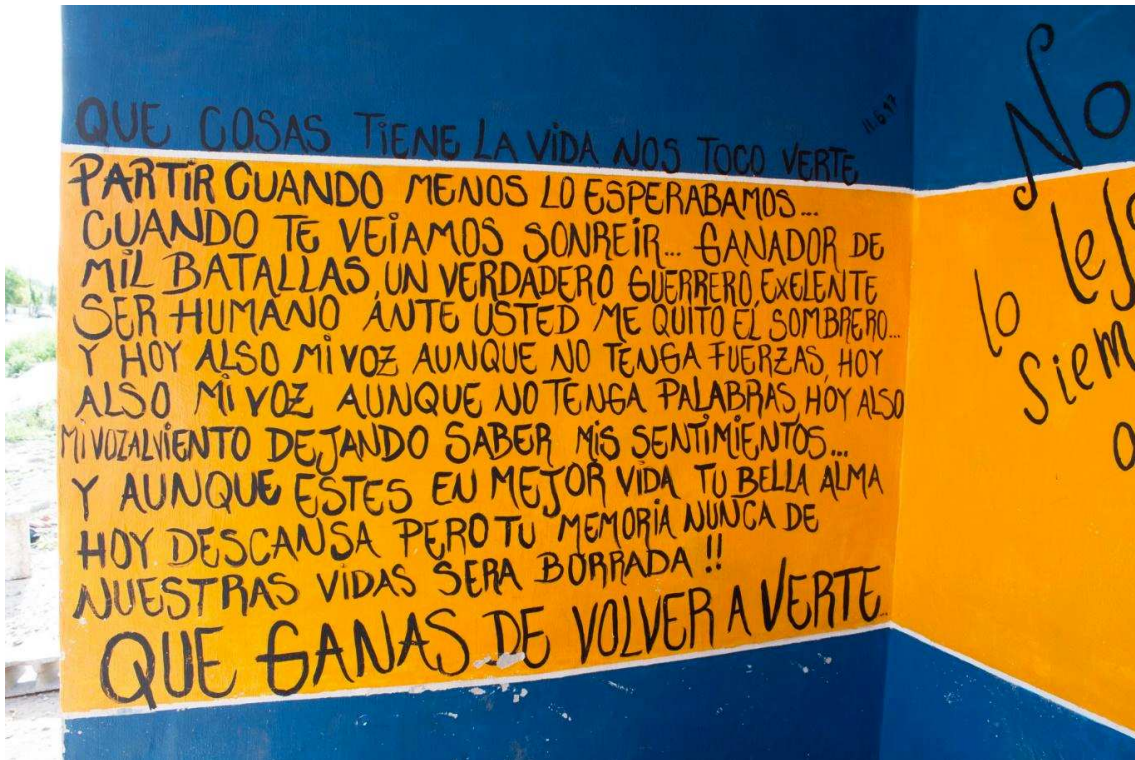 QUE COSAS TIENE LA VIDA NOS TOCO VERTE
PARTIR CUANDO MENOS LO ESPERABAMOS...
CUANDO TE VEIAMOS SONREIR... GANADOR DE
MIL BATALLAS, UN VERDADERO GUERRERO, EXELENTE
SER HUMANO ANTE USTED ME QUITO EL SOMBRERO...
Y HOY ALSO MI VOZ AUNQUE NO TENGA FUERZAS, HOY
ALSO MI VOZ AUNQUE NO TENGA PALABRAS, HOY ALSO
MI VOZ AL VIENTO DEJANDO SABER MIS SENTIMIENTOS...
Y AUNQUE ESTES EN MEJOR VIDA TU BELLA ALMA
HOY DESCANSA PERO TU MEMORIA NUNCA DE
NUESTRAS VIDAS SERA BORRADA !!
QUE GANAS DE VOLVER A VERTE...
No
lo
Siem